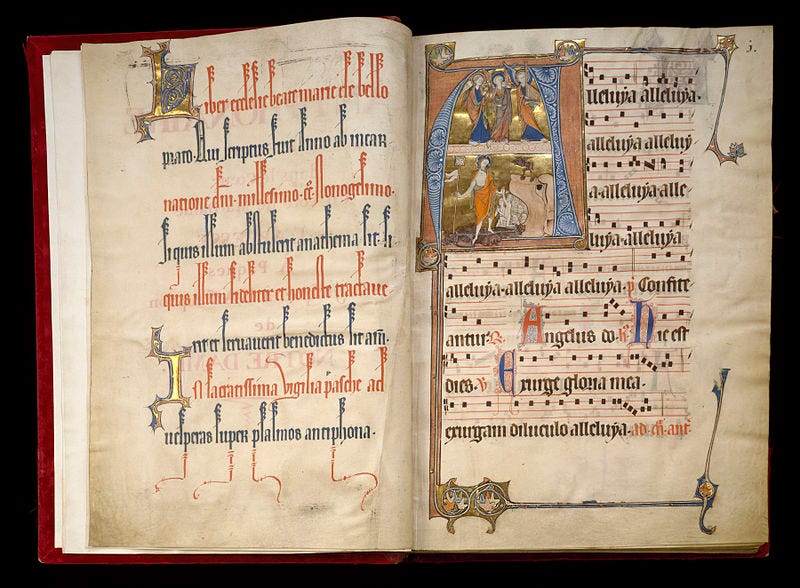 Liber ecclesie beate marie de bello
prato. Qui scriptus fuit Anno ab incar
natione dni millesimo. cc. Nonogesimo.
si quis illum abstulerit anathema sit. si
quis illum fideliter et honeste tractaue
rit et seruauerit benedictus sit am.
In sacratissima vigilia pasche ad
uesperas super psalmos antiphona.
j.
Alleluya alleluya.
alleluya alleluy
a. alleluya. alle
luya. alleluya
alleluya. alleluya alleluya. p Confite
antur. R. Angelus do. R. Hic est
dies. V Exurge gloria mea.
exurgam diluculo alleluya. ad ant